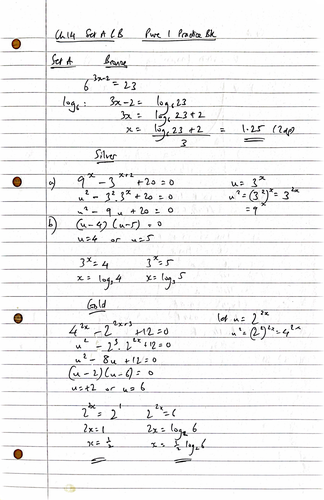 Ch 14 Set A & B Pure 1 Practice Bk
Set A Bronze
6^(3x-2) = 23
log₆: 3x-2 = log₆ 23
3x = log₆ 23 + 2
x = (log₆ 23 + 2)/3 = 1.25 (2dp)
Silver
a) 9^x - 3^(x+2) + 20 = 0 u = 3^x
u² - 3².3^x + 20 = 0 u² = (3²)^x = 3^(2x)
u² - 9u + 20 = 0 = 9^x
b) (u-4)(u-5) = 0
u = 4 or u = 5
3^x = 4 3^x = 5
x = log₃ 4 x = log₃ 5
Gold
let u = 2^(2x)
4^(2x) - 2^(2x+3) + 12 = 0 u² = (2²)^(2x) = 4^(2x)
u² - 2³.2^(2x) + 12 = 0
u² - 8u + 12 = 0
(u-2)(u-6) = 0
u = +2 or u = 6
2^(2x) = 2^1 2^(2x) = 6
2x = 1 2x = log₂ 6
x = ½ x = ½ log₂ 6